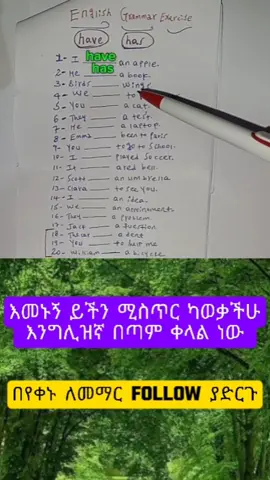 English Grammar Exercise
have has
1- I have an apple.
2- He has a book.
3- Birds wings
4- We to
5- You a cat.
6- They a test.
7- He a laptop.
8- Emma been to Paris
9- You to go to School.
10- I played soccer.
11- It a red bed.
12- Scott an umbrella
13- Clara to see you.
14- I an idea.
15- We an appointments
16- They a problem
17- Jack a question
18- That a dent
19- You to bait me
20- William a bicycle
እመኑኝ ይችን ሚስጥር ካወቃችሁ
እንግሊዝኛ በጣም ቀላል ነው
በየቀኑ ለመማር FOLLOW ያድርጉ